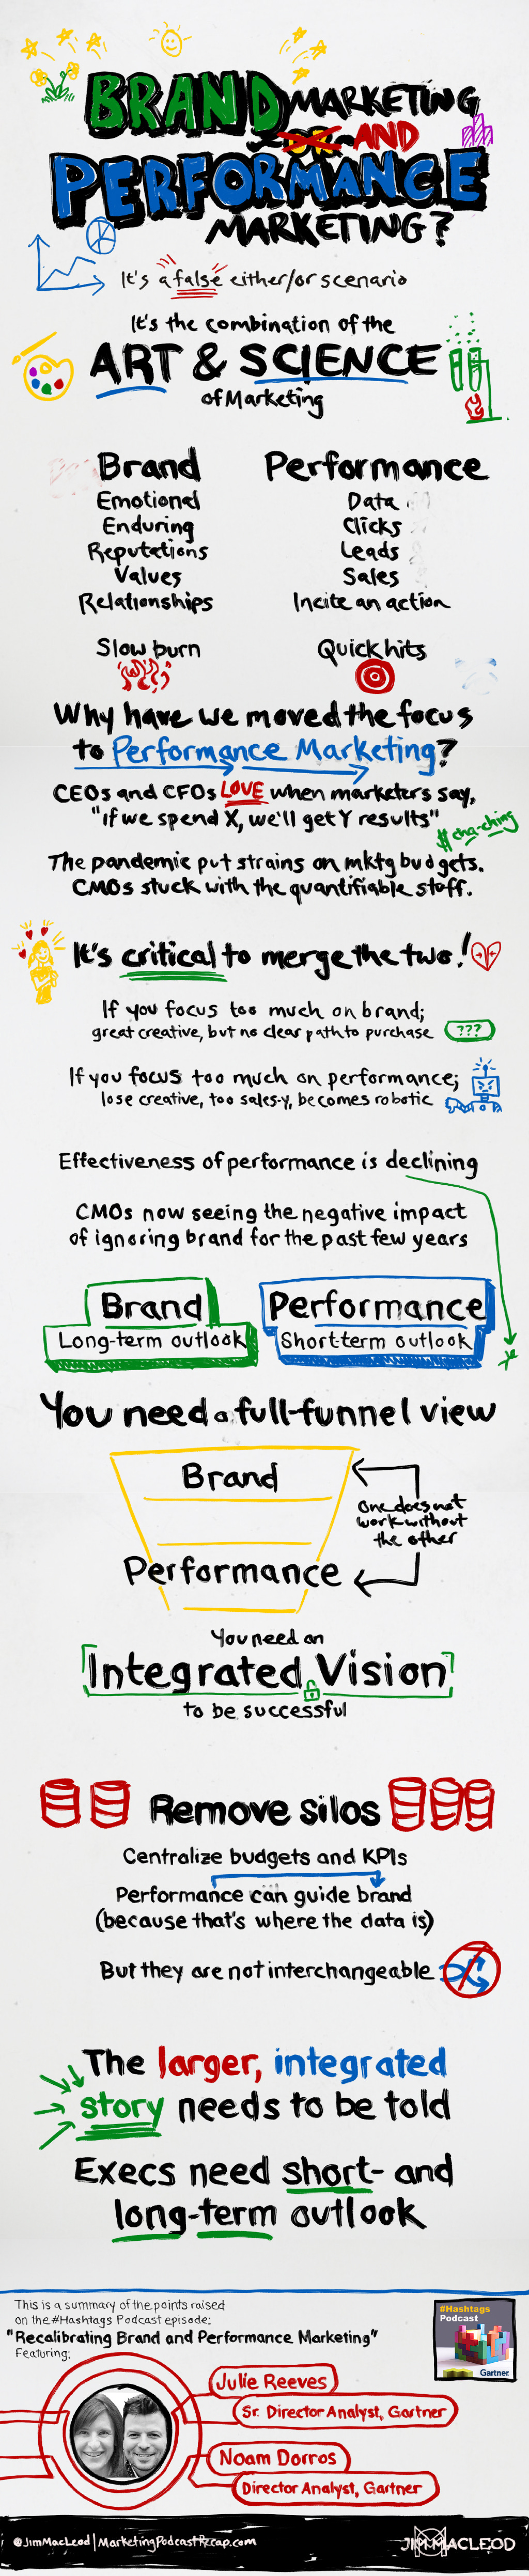 BRAND MARKETING
OR AND
PERFORMANCE
MARKETING?
It's a false either/or scenario
It's the combination of the
ART & SCIENCE
of Marketing
Brand
Emotional
Enduring
Reputations
Values
Relationships
Slow burn
Performance
Data
Clicks
Leads
Sales
Incite an action
Quick hits
Why have we moved the focus
to Performance Marketing?
CEOs and CFOs LOVE when marketers say,
"if we spend X, we'll get Y results"
$ cha-ching
The pandemic put strains on mktg budgets.
CMOs stuck with the quantifiable stuff.
It's critical to merge the two!
If you focus too much on brand;
great creative, but no clear path to purchase
???
If you focus too much on performance;
lose creative, too sales-y, becomes robotic
Effectiveness of performance is declining
CMOs now seeing the negative impact
of ignoring brand for the past few years
Brand
Long-term outlook
Performance
Short term outlook
You need a full-funnel view
Brand
One does not
work without
the other
Performance
You need an
Integrated Vision
to be successful
Remove silos
Centralize budgets and KPIs
Performance can guide brand
(because that's where the data is)
But they are not interchangeable
The larger, integrated
story needs to be told
Execs need short- and
long-term outlook
This is a summary of the points raised
on the #Hashtags Podcast episode:
"Recalibrating Brand and Performance Marketing"
Featuring:
#Hashtags
Podcast
Gartner
Julie Reeves
Sr. Director Analyst, Gartner
Noam Dorros
Director Analyst, Gartner
@JimMacLeod | MarketingPodcastRecap.com
JIM MACLEOD